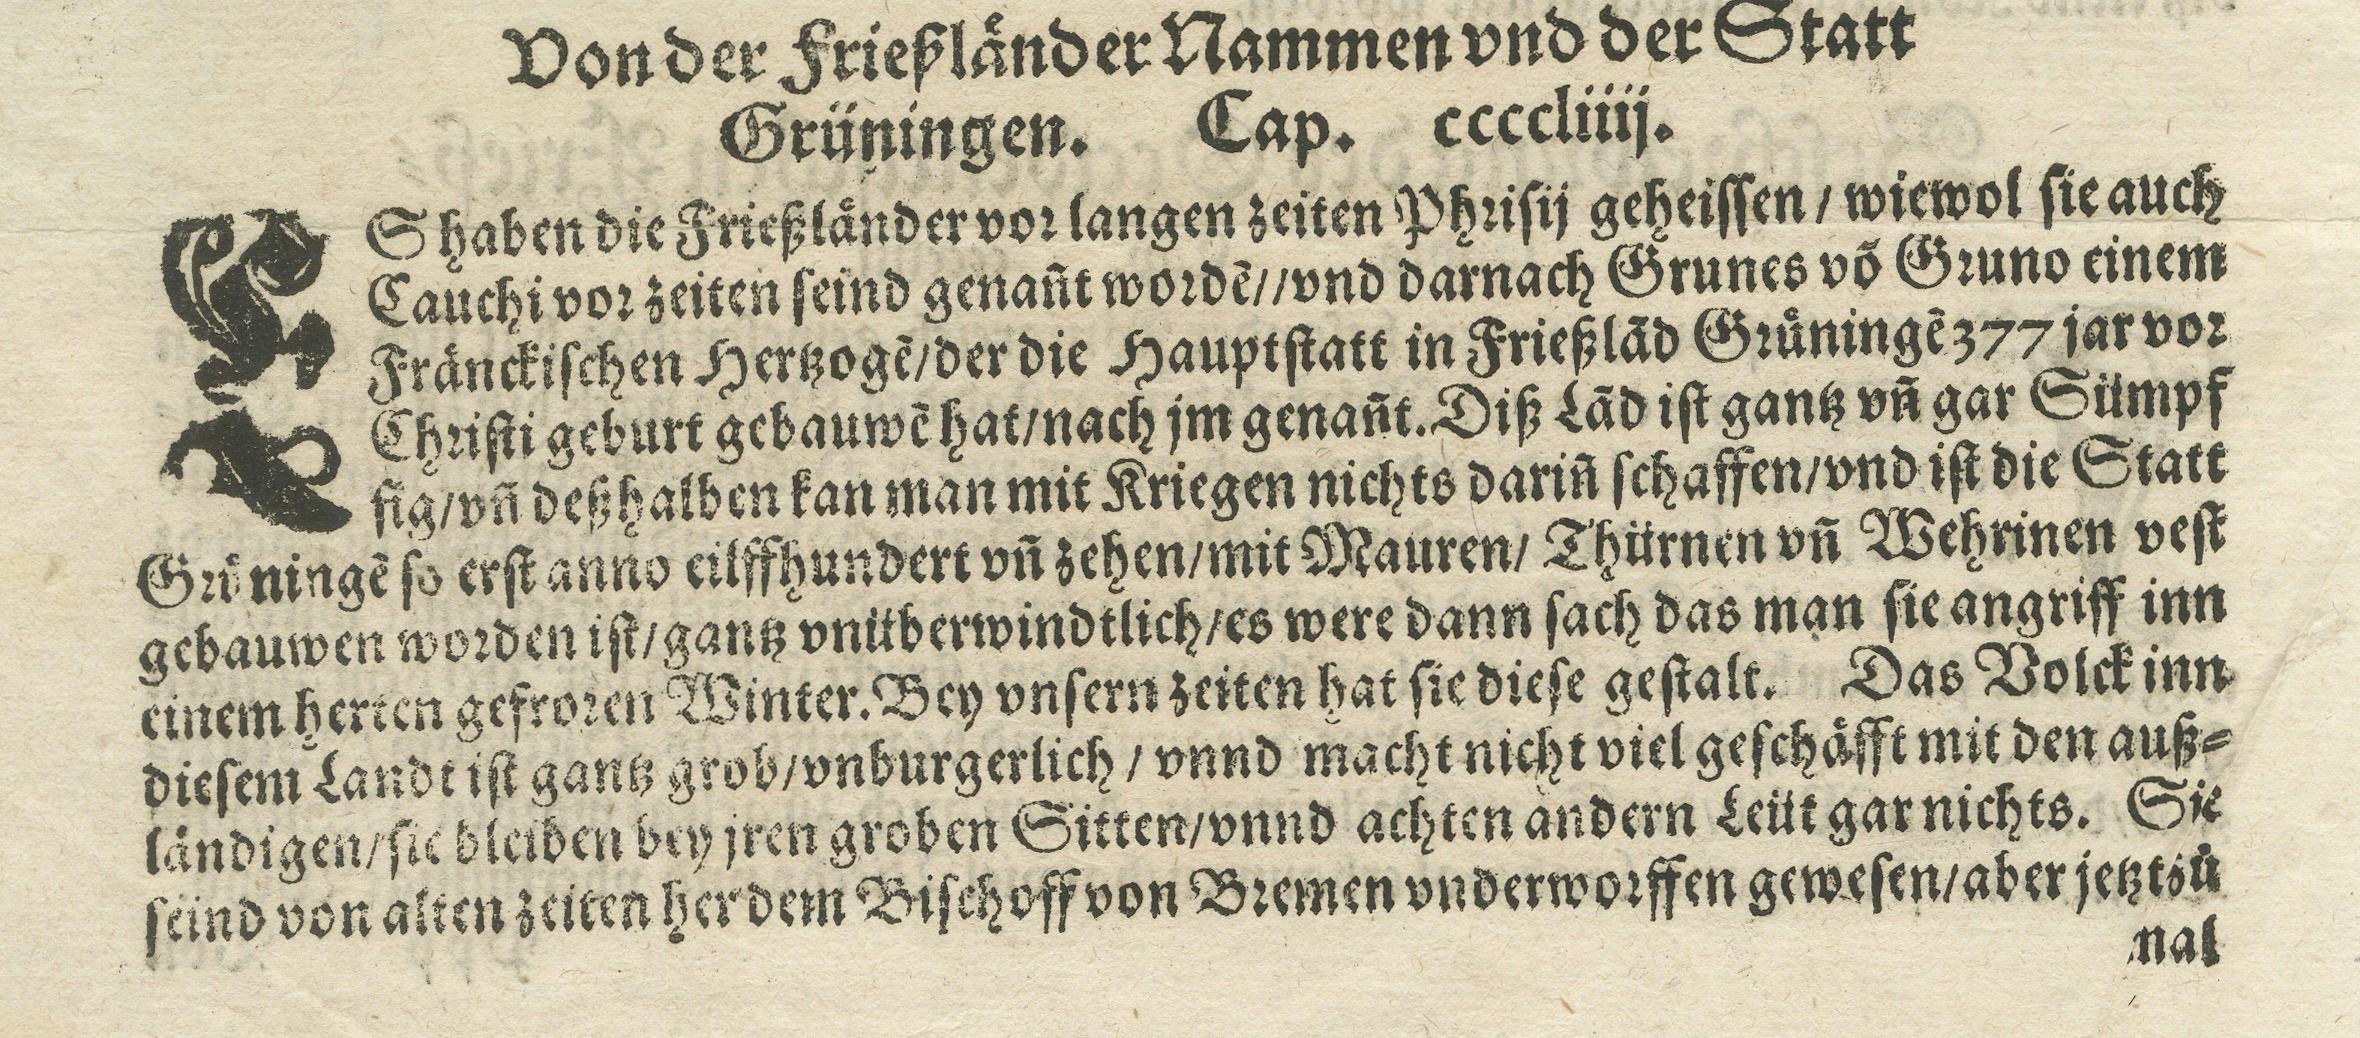 Von der Frießlånder Nammen vnd der Statt
Grüningen. Cap. ccccliiij.
ES haben die Frießlånder vor langen zeiten Phrisij geheissen / wiewol sie auch
Cauchi vor zeiten seind genañt wordẽ / / vnd darnach Grunes võ Gruno einem
Frånckischen Hertzogẽ / der die Hauptstatt in Frießlãd Grůningẽ 377 jar vor
Christi geburt gebauwẽ hat / nach jm genañt. Diß Lãd ist gantz vñ gar Sümpf
fig / vñ deßhalben kan man mit Kriegen nichts dariñ schaffen / vnd ist die Statt
Grůningẽ so erst anno eilffhundert vñ zehen / mit Mauren / Thürnen vñ Wehrinen vest
gebauwen worden ist / gantz vnüberwindtlich / es were dann sach das man sie angriff inn
einem herten gefroren Winter. Bey vnsern zeiten hat sie diese gestalt. Das Volck inn
diesem Landt ist gantz grob / vnburgerlich / vnnd macht nicht viel geschåfft mit den auß⸗
ländigen / sie bleiben bey jren groben Sitten / vnnd achten andern Leüt gar nichts. Sie
seind von alten zeiten her dem Bischoff von Bremen vnderworffen gewesen / aber jetzt zů
mal